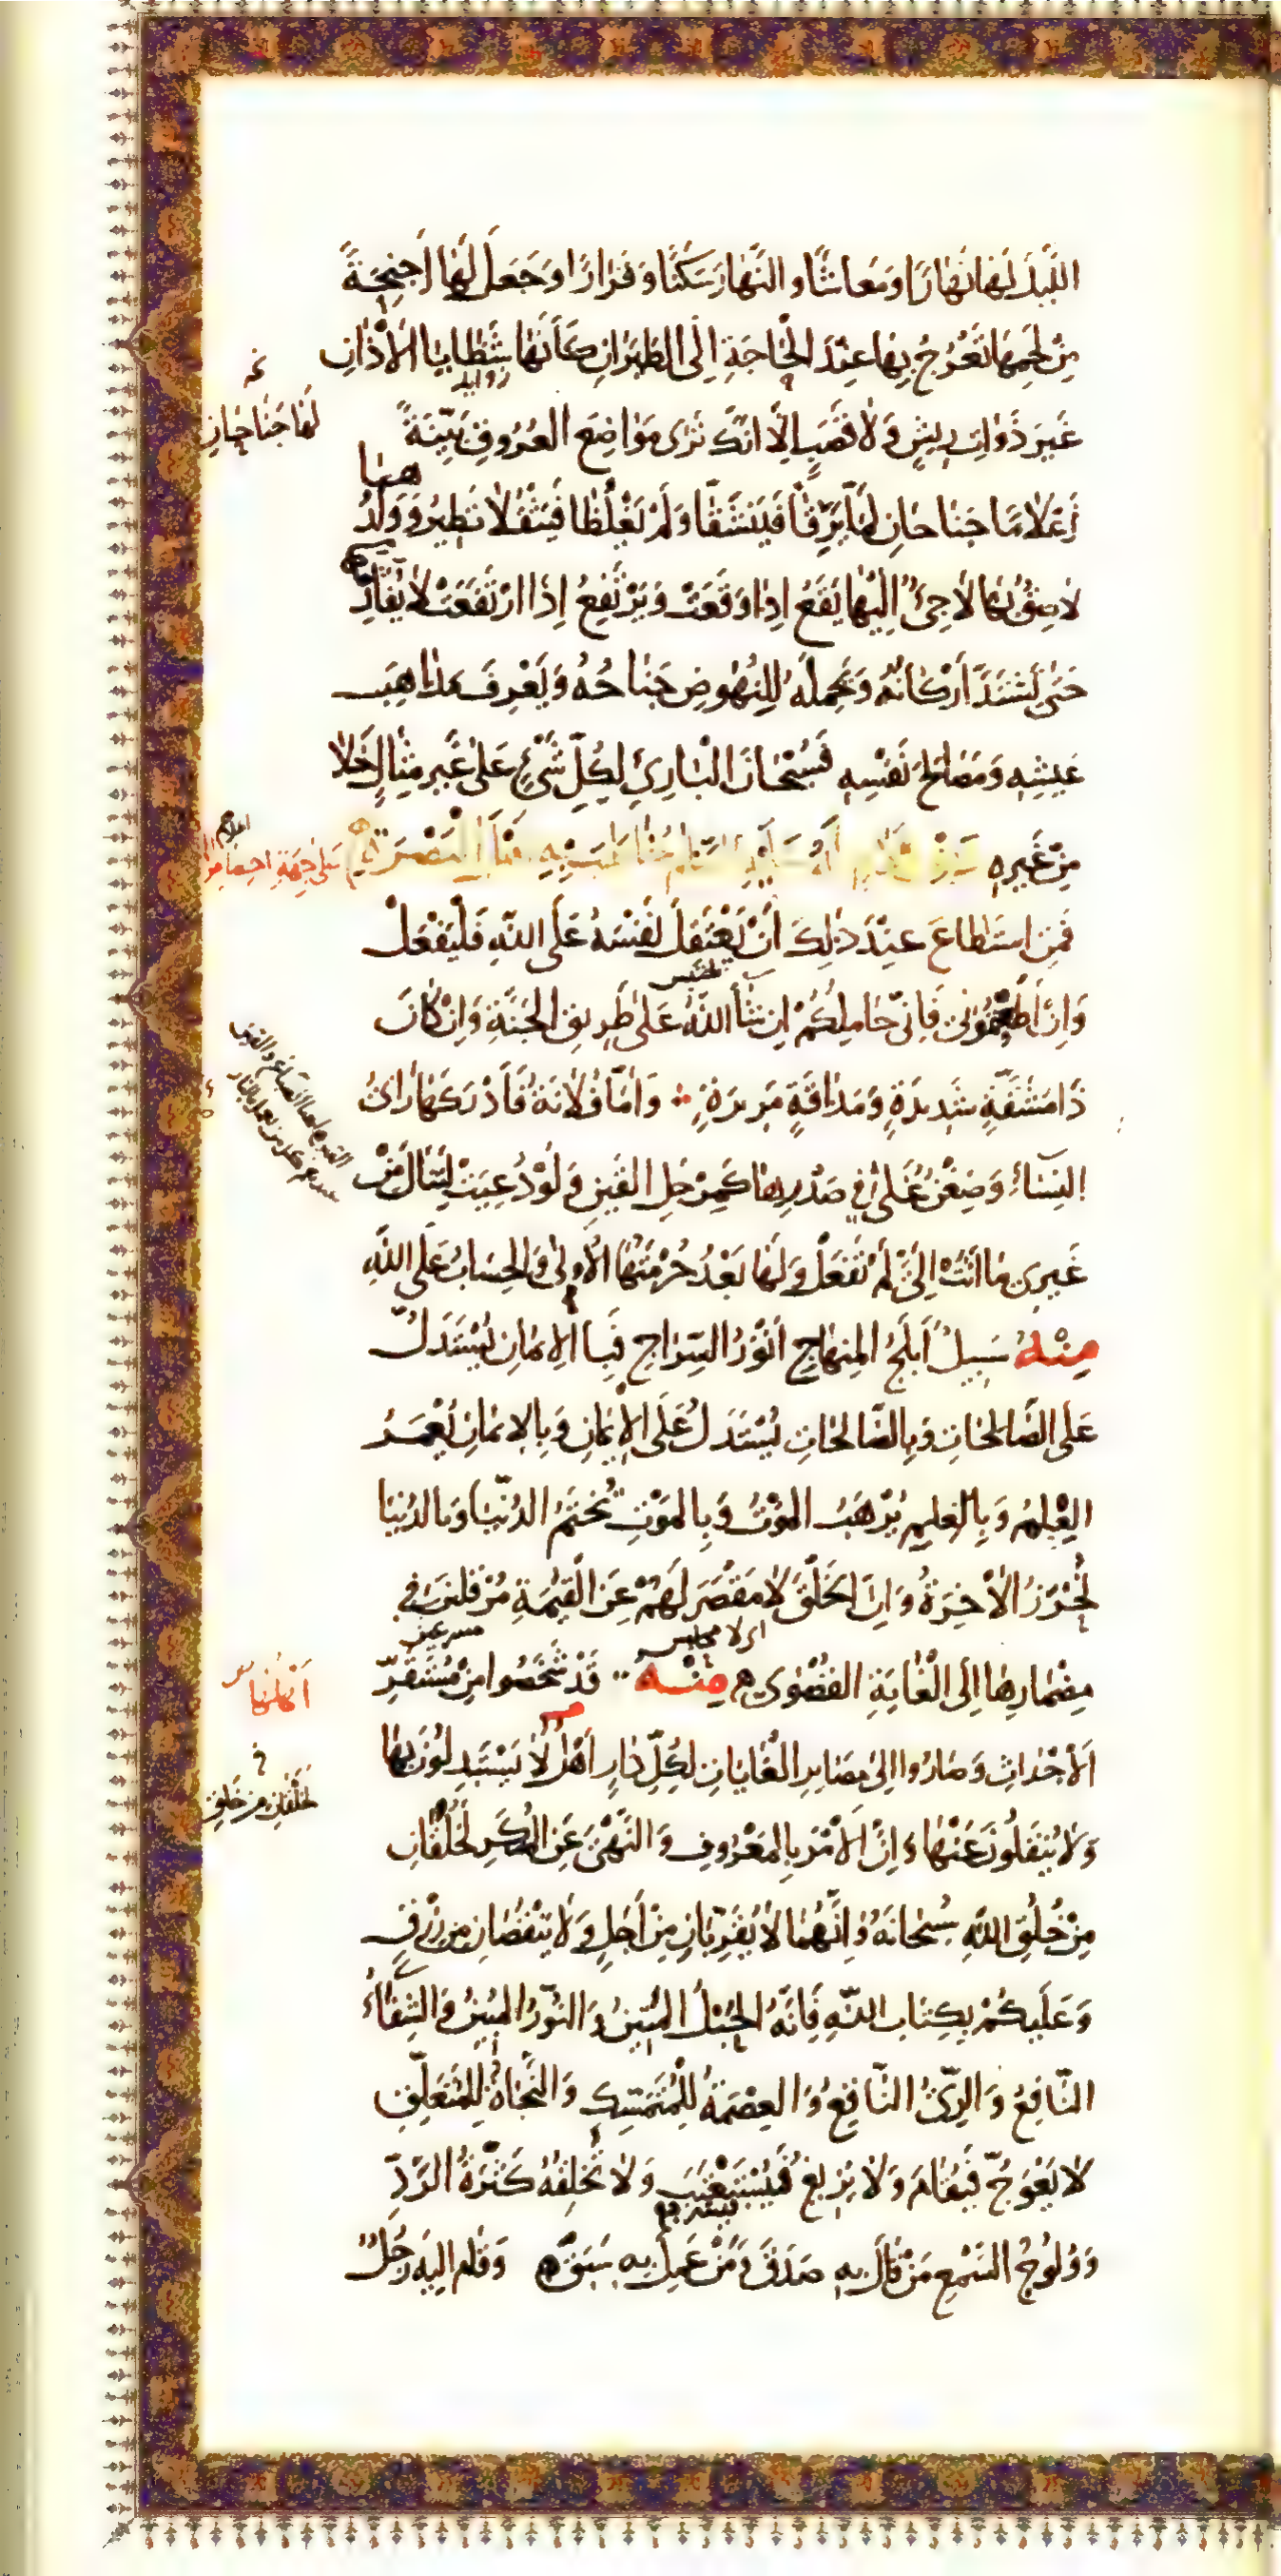 اللَّيْلَ لَهَا نَهَارًا وَمَعَاشًا وَالنَّهَارَ سَكَنًا وَقَرَارًا وَجَعَلَ لَهَا أَجْنِحَةً
مِنْ لَحْمِهَا تَعْرُجُ بِهَا عِنْدَ الْحَاجَةِ إِلَى الطَّيَرَانِ كَأَنَّهَا شَظَايَا الْآذَانِ
غَيْرَ ذَوَاتِ رِيشٍ وَلَا قَصَبٍ إِلَّا أَنَّكَ تَرَى مَوَاضِعَ الْعُرُوقِ بَيِّنَةً
لَهَا جَنَاحَانِ
أَعْلَامًا جَنَاحَانِ لَمَّا يَرِقَّا فَيَنْشَقَّا وَلَمْ يَغْلُظَا فَيَثْقُلَا تَطِيرُ وَوَلَدُهَا
لَاصِقٌ بِهَا لَاجِئٌ إِلَيْهَا يَقَعُ إِذَا وَقَعَتْ وَيَرْتَفِعُ إِذَا ارْتَفَعَتْ لَا يُفَارِقُهَا
حَتَّى تَشْتَدَّ أَرْكَانُهُ وَيَحْمِلَهُ لِلنُّهُوضِ جَنَاحُهُ وَيَعْرِفَ مَذَاهِبَ
عَيْشِهِ وَمَصَالِحَ نَفْسِهِ فَسُبْحَانَ الْبَارِئِ لِكُلِّ شَيْءٍ عَلَى غَيْرِ مِثَالٍ خَلَا
مِنْ غَيْرِهِ خَاطَبَ بِهِ أَهْلَ الْبَصْرَةِ عَلَى جِهَةِ اقتصاص
فَمَنِ اسْتَطَاعَ عِنْدَ ذَلِكَ أَنْ يَعْتَقِلَ نَفْسَهُ عَلَى اللَّهِ فَلْيَفْعَلْ
وَإِنْ أَطَعْتُمُونِي فَإِنِّي حَامِلُكُمْ إِنْ شَاءَ اللَّهُ عَلَى طَرِيقِ الْجَنَّةِ وَإِنْ كَانَ
ذَا مَشَقَّةٍ شَدِيدَةٍ وَمَذَاقَةٍ مَرِيرَةٍ وَأَمَّا فُلَانَةُ فَأَدْرَكَهَا رَأْيُ
النِّسَاءِ وَضِغْنٌ غَلَى فِي صَدْرِهَا كَمِرْجَلِ الْقَيْنِ وَلَوْ دُعِيَتْ لِتَنَالَ مِنْ
غَيْرِي مَا أَتَتْ إِلَيَّ لَمْ تَفْعَلْ وَلَهَا بَعْدُ حُرْمَتُهَا الْأُولَى وَالْحِسَابُ عَلَى اللَّهِ
مِنْهُ سَبِيلٌ أَبْلَجُ الْمِنْهَاجِ أَنْوَرُ السِّرَاجِ فَبِالْإِيمَانِ يُسْتَدَلُّ
عَلَى الصَّالِحَاتِ وَبِالصَّالِحَاتِ يُسْتَدَلُّ عَلَى الْإِيمَانِ وَبِالْإِيمَانِ يُعْمَرُ
الْعِلْمُ وَبِالْعِلْمِ يُرْهَبُ الْمَوْتُ وَبِالْمَوْتِ تُخْتَمُ الدُّنْيَا وَبِالدُّنْيَا
تُحْرَزُ الْآخِرَةُ وَإِنَّ الْخَلْقَ لَا مَقْصَرَ لَهُمْ عَنِ الْقِيمَةِ مُرْقِلِينَ فِي
مسرعين
مِضْمَارِهَا إِلَى الْغَايَةِ الْقُصْوَى مِنْهُ قَدْ شَخَصُوا مِنْ مُسْتَقَرِّ
الْأَجْدَاثِ وَصَارُوا إِلَى مَصَايِرِ الْغَايَاتِ لِكُلِّ دَارٍ أَهْلٌ لَا يَسْتَبْدِلُونَ بِهَا
وَلَا يُنْقَلُونَ عَنْهَا وَإِنَّ الْأَمْرَ بِالْمَعْرُوفِ وَالنَّهْيَ عَنِ الْمُنْكَرِ لَخُلُقَانِ
لَخُلُقَانِ مِنْ خُلُقِ
مِنْ خُلُقِ اللَّهِ سُبْحَانَهُ وَإِنَّهُمَا لَا يُقَرِّبَانِ مِنْ أَجَلٍ وَلَا يَنْقُصَانِ مِنْ رِزْقٍ
وَعَلَيْكُمْ بِكِتَابِ اللَّهِ فَإِنَّهُ الْحَبْلُ الْمَتِينُ وَالنُّورُ الْمُبِينُ وَالشِّفَاءُ
النَّافِعُ وَالرِّيُّ النَّاقِعُ وَالْعِصْمَةُ لِلْمُتَمَسِّكِ وَالنَّجَاةُ لِلْمُتَعَلِّقِ
لَا يَعْوَجُّ فَيُقَامَ وَلَا يَزِيغُ فَيُسْتَعْتَبَ وَلَا تُخْلِقُهُ كَثْرَةُ الرَّدِّ
وَوُلُوجُ السَّمْعِ مَنْ قَالَ بِهِ صَدَقَ وَمَنْ عَمِلَ بِهِ سَبَقَ وَقَامَ إِلَيْهِ رَجُلٌ